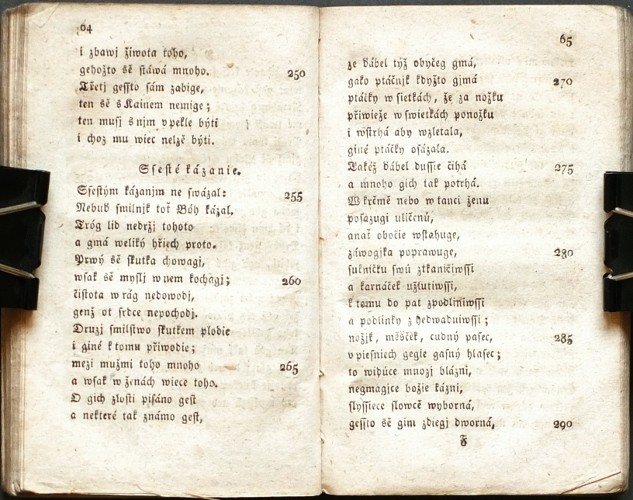 64
i zbawj žiwota toho,
gehožto sě stáwá mnoho. 250
Třetj gessto sám zabige,
ten sě s Kainem nemige;
ten musj s njm w pekle býti
i choz mu wiec nelzě býti.
Ssesté kázanie.
Ssestým kázanjm ne swázal: 255
Nebud smilnjk toť Bóh kázal.
Tróg lid nedržj tohoto
a gmá weliký hřiech proto.
Prwý sě skutka chowagj,
wsak sě myslj w nem kochagj; 260
čistota w rág nedowodj,
genž ot srdce nepochodj.
Druzj smilstwo skutkem plodie
i giné k tomu přiwodie;
mezi mužmi toho mnoho 265
a wsak w ženách wiece toho.
O gich zlosti pisáno gest
a nekteré tak známo gest,
65
že Dábel týž obyčeg gmá,
gako ptáčnjk kdyžto gjmá 270
ptáčky w sietkách, že za nožku
přiwieže w swietkách ponožku
i wstrhá aby wzletala,
giné ptáčky osázala.
Takéž Dábel dussie číhá 275
a mnoho gich tak potrhá.
W krčmě nebo w tanci ženu
posazugi uličenú,
anař obočie wstahuge,
záwogjka poprawuge, 280
sukničku swú ztkaničiwssi
a karnáček užlutiwssi,
k tomu do pat zpodlmiwssi
a podlinky z hedwaduiwssi;
nožjk, měsček, cudný pasec, 285
w piesniech gegie gasný hlasec;
to widúce mnozj blázni,
negmagjce božie kázni,
slyssiece slowcě wyborná,
gessto sě gim zdiegj dworná, 290
F